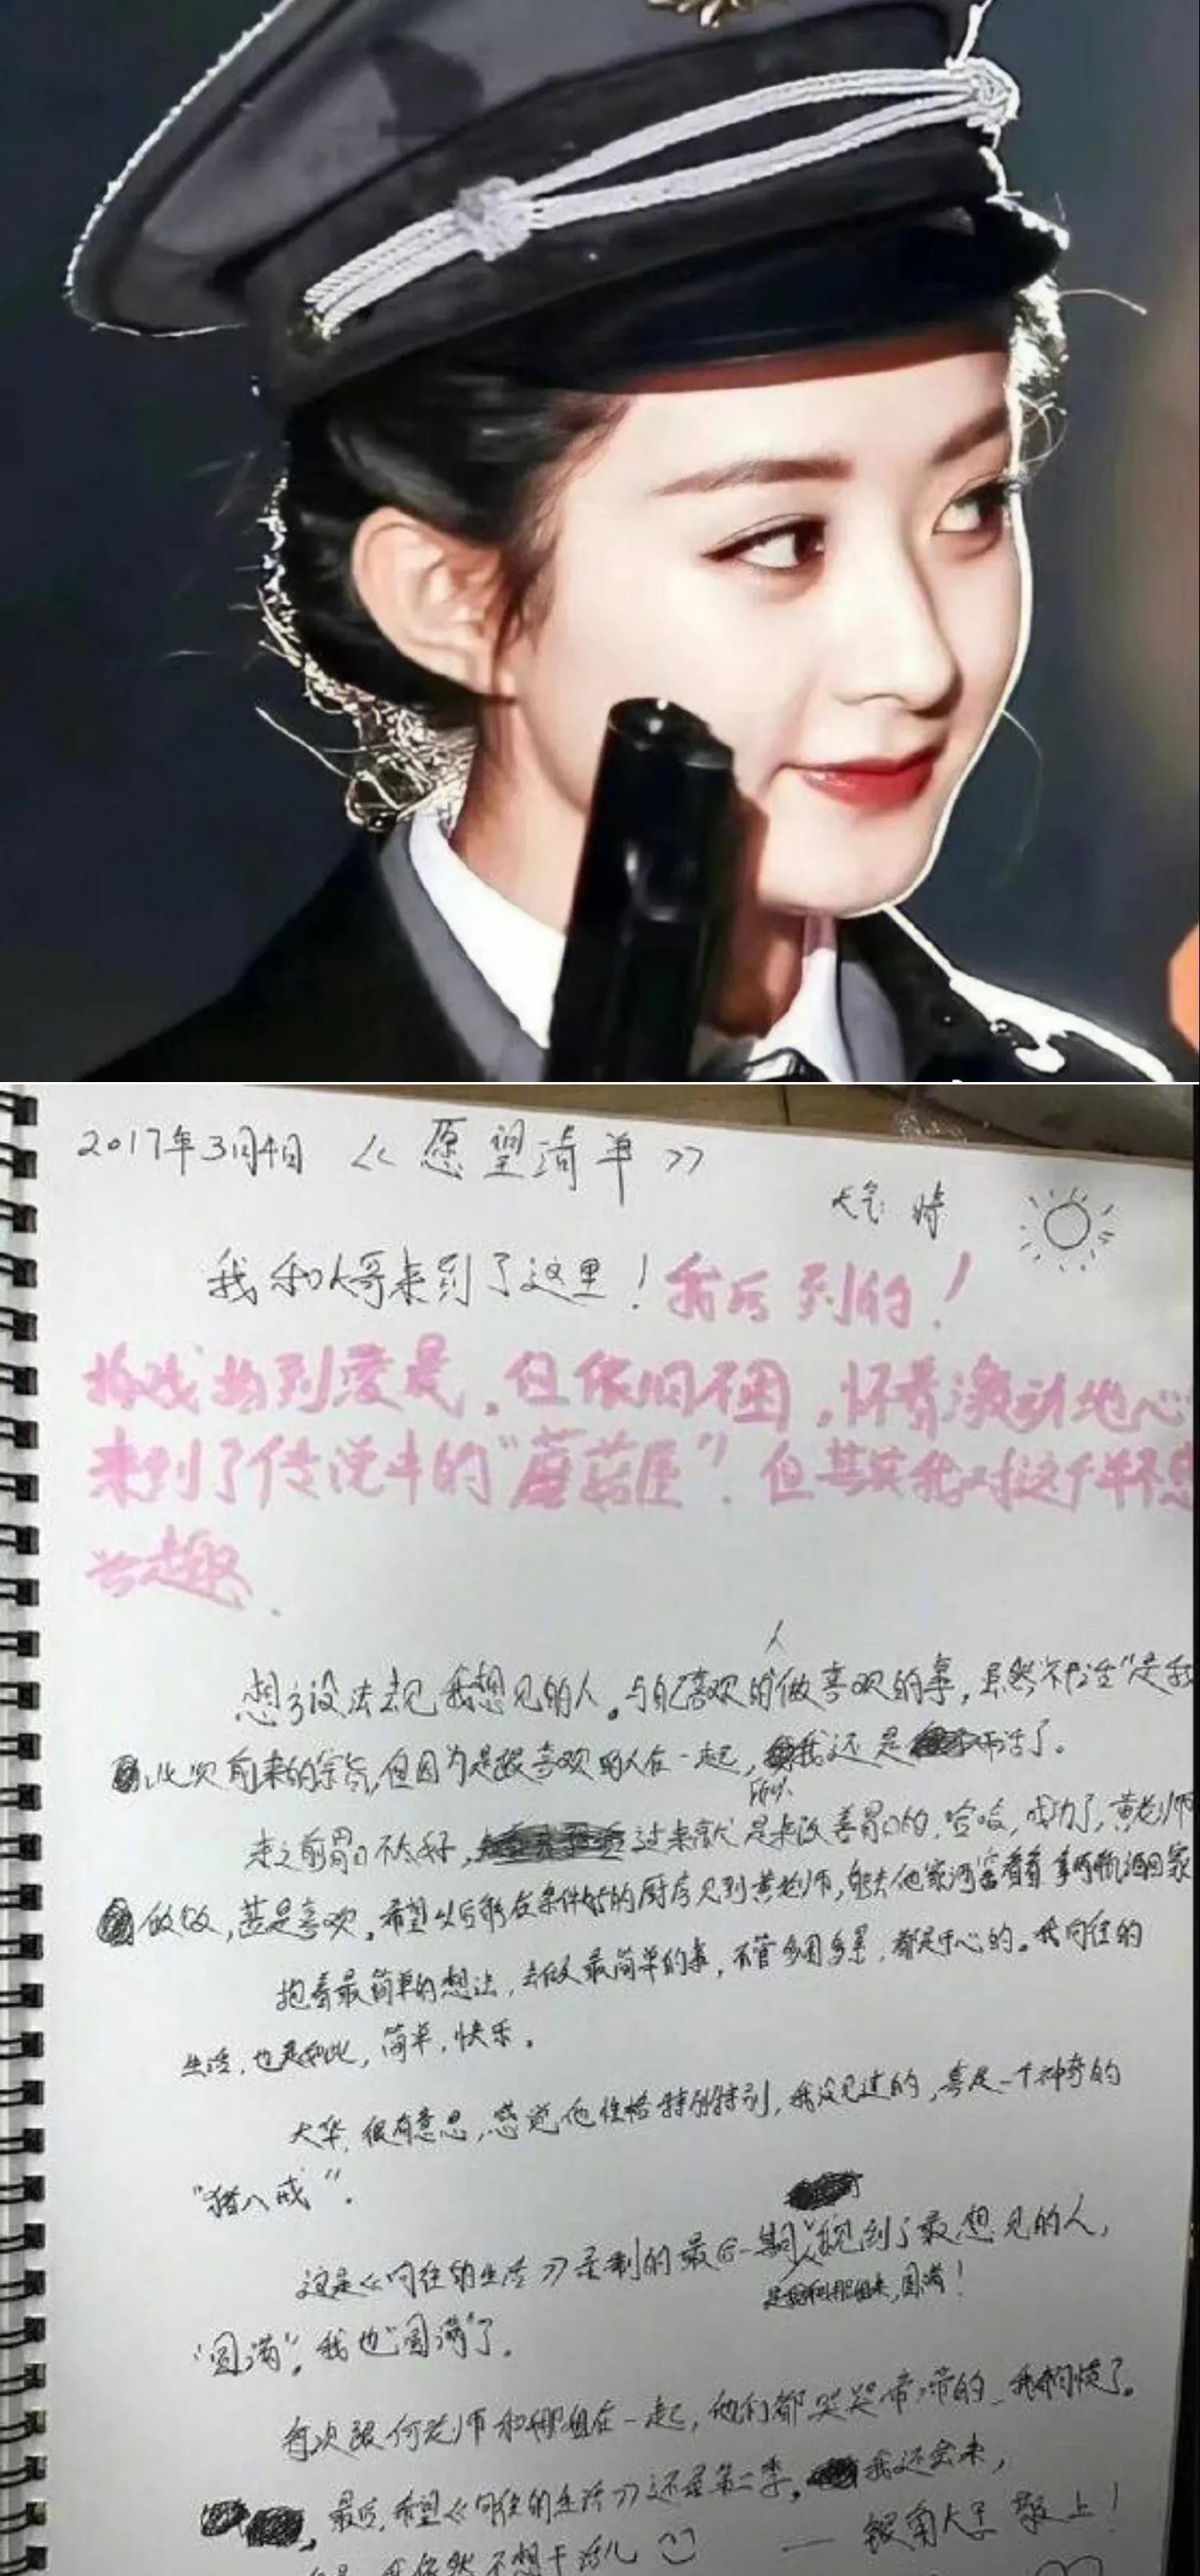 2017年3月4日 《愿望清单》
天气 晴
我和大哥来到了这里！我后到的！
拍戏拍到凌晨，但依旧不困，怀着激动地心
来到了传说中的“蘑菇屋”．但其实我对这个并不感
兴趣．
人
想方设法去见我想见的人。与自己喜欢的做喜欢的事，虽然“不干活”是我
此次前来的宗旨,但因为是跟喜欢的人在一起，我还是干活了。
所以
来之前胃口不太好，过来就是来改善胃口的．哈哈，成功了，黄老师
做饭，甚是喜欢．希望以后能在条件好的厨房见到黄老师，能去他家酒窖看看 拿两瓶酒回家
抱着最简单的想法，去做最简单的事，不管多困多累，都是开心的。我向往的
生活．也是如此，简单，快乐。
大华，很有意思，感觉他性格特别特别，我没见过的，真是一个神奇的
“猪八戒”．
这是《向往的生活》录制的最后一期，我见到了最想见的人，
圆满！
“圆满”，我也“圆满”了．
每次跟何老师和娜姐在一起，他们都哭哭啼啼的
最后，希望《向往的生活》还有第二季，我还会来，
我依然不想干活儿
—— 银角大王 敬上！